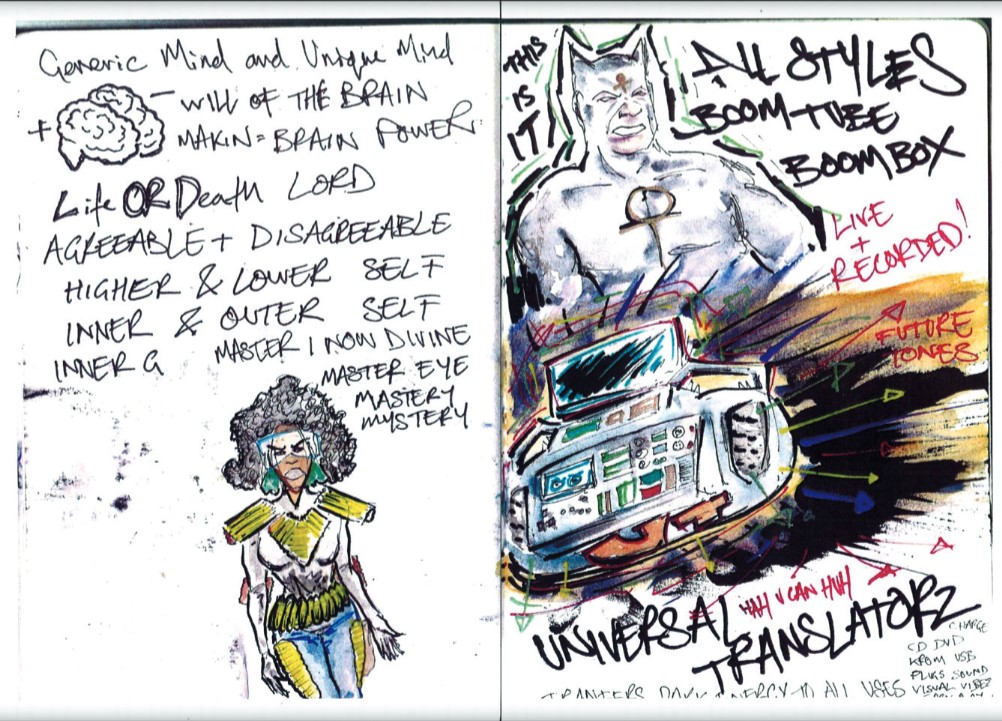 Generic Mind and Unique Mind
+ – WILL OF THE BRAIN
MAKIN = BRAIN POWER
Life OR Death LORD
AGREEABLE + DISAGREEABLE
HIGHER & LOWER SELF
INNER & OUTER SELF
INNER G MASTER I NOW DIVINE
MASTER EYE
MASTERY
MYSTERY
THIS
IS
IT
ALL STYLES
BOOM-TUBE
BOOM BOX
LIVE
+
RECORDED!
FUTURE
TONES
UNIVERSAL
HAH V CAN HUH
TRANSLATORZ
CHARGE
CD DVD
USB
PLUKS SOUND
VISUAL VIBEZ
TRANFERS DARK ENERGY TO ALL USES